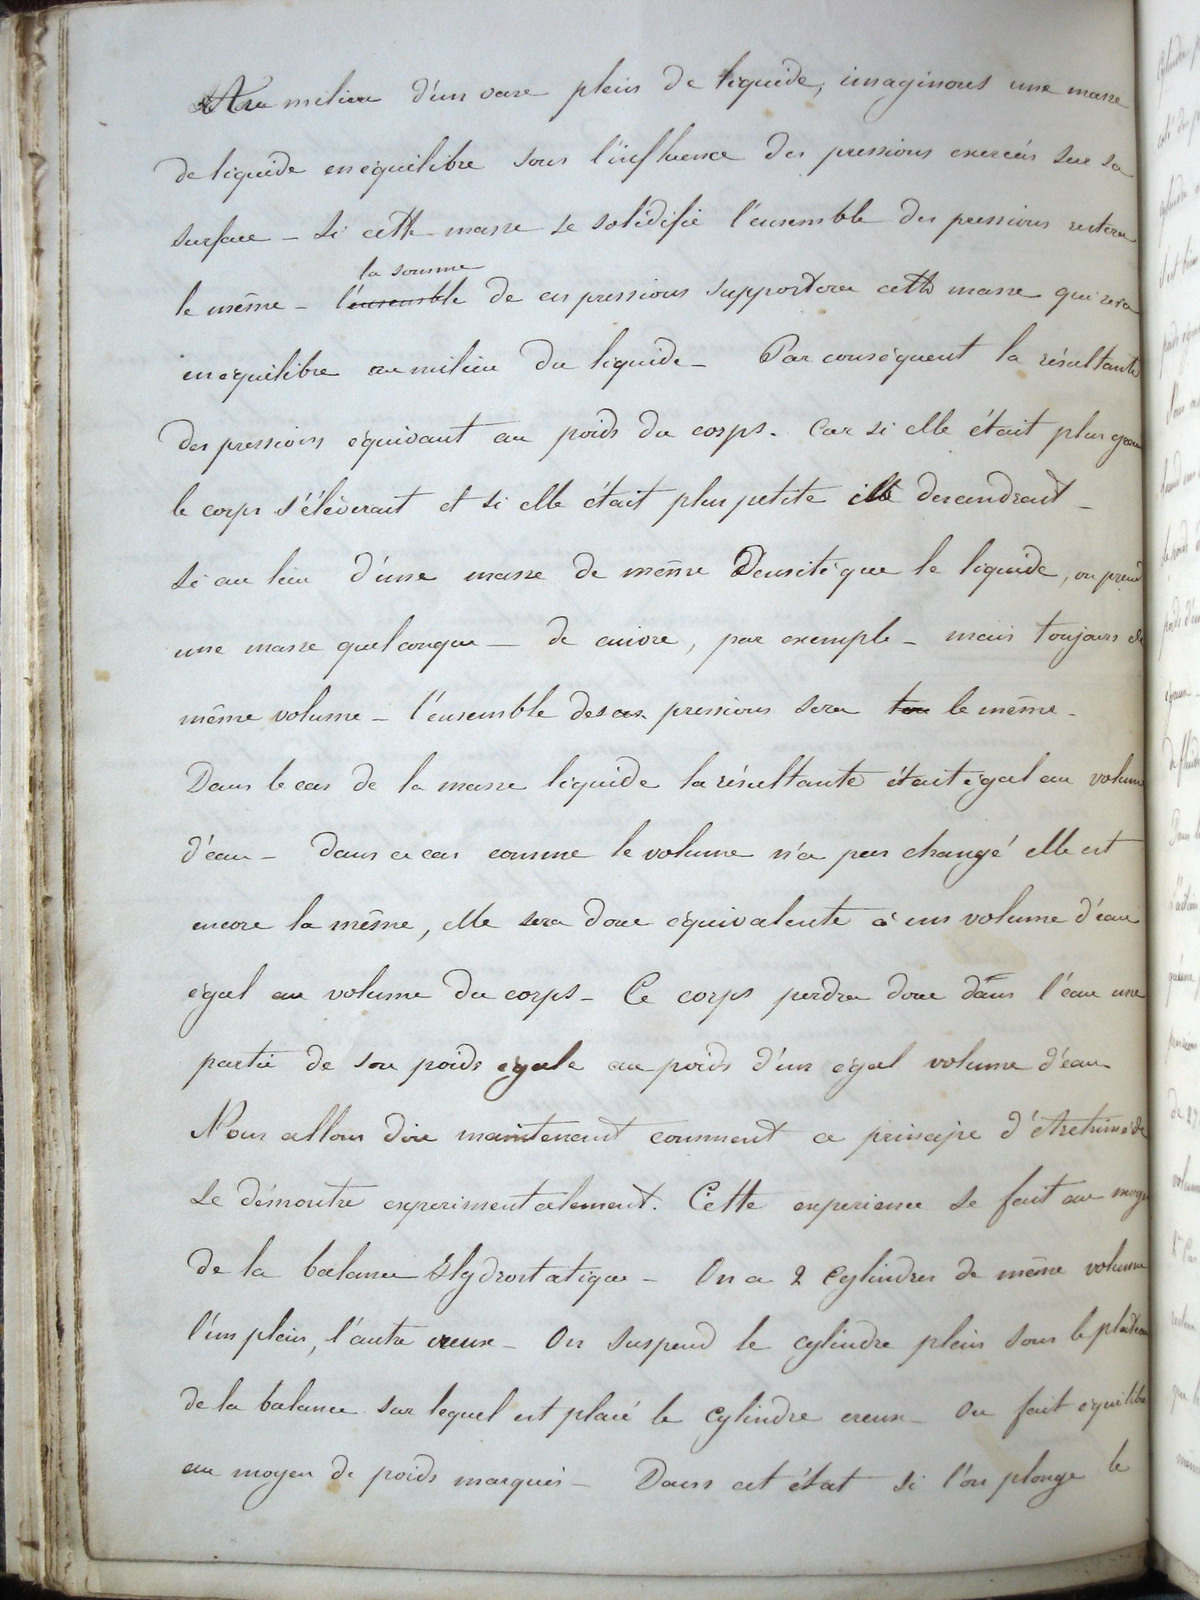 Au milieu d'un vase plein de liquide, imaginons une masse
de liquide en équilibre sous l'influence des pressions exercées sur sa
surface – Si cette masse se solidifie l'ensemble des pressions restera
la somme
le même – l'ensemble de ces pressions supportera cette masse qui sera
en équilibre au milieu du liquide – Par conséquent la résultante
des pressions équivaut au poids du corps. Car si elle était plus gran
le corps s'élèverait et si elle était plus petite il descendrait –
Si au lieu d'une masse de même Densité que le liquide, on prend
une masse quelconque – de cuivre, par exemple – mais toujours de
même volume – l'ensemble des pressions sera tou le même –
Dans le cas de la masse liquide la résultante était égal au volume
d'eau – dans ce cas comme le volume n'a pas changé elle est
encore la même, elle sera donc équivalente à un volume d'eau
égal au volume du corps – Ce corps perdra donc dans l'eau une
partie de son poids égale au poids d'un égal volume d'eau
Nous allons dire maintenant comment ce principe d'Archimède
se démontre experimentalement. Cette experience se fait au moye
de la balance Hydrostatique – On a 2 Cylindres de même volume
l'un plein, l'autre creux – On suspend le cylindre plein sous le plateau
de la balance sur lequel est placé le Cylindre creux – On fait équilibre
au moyen de poids marqués – Dans cet état si l'on plonge le